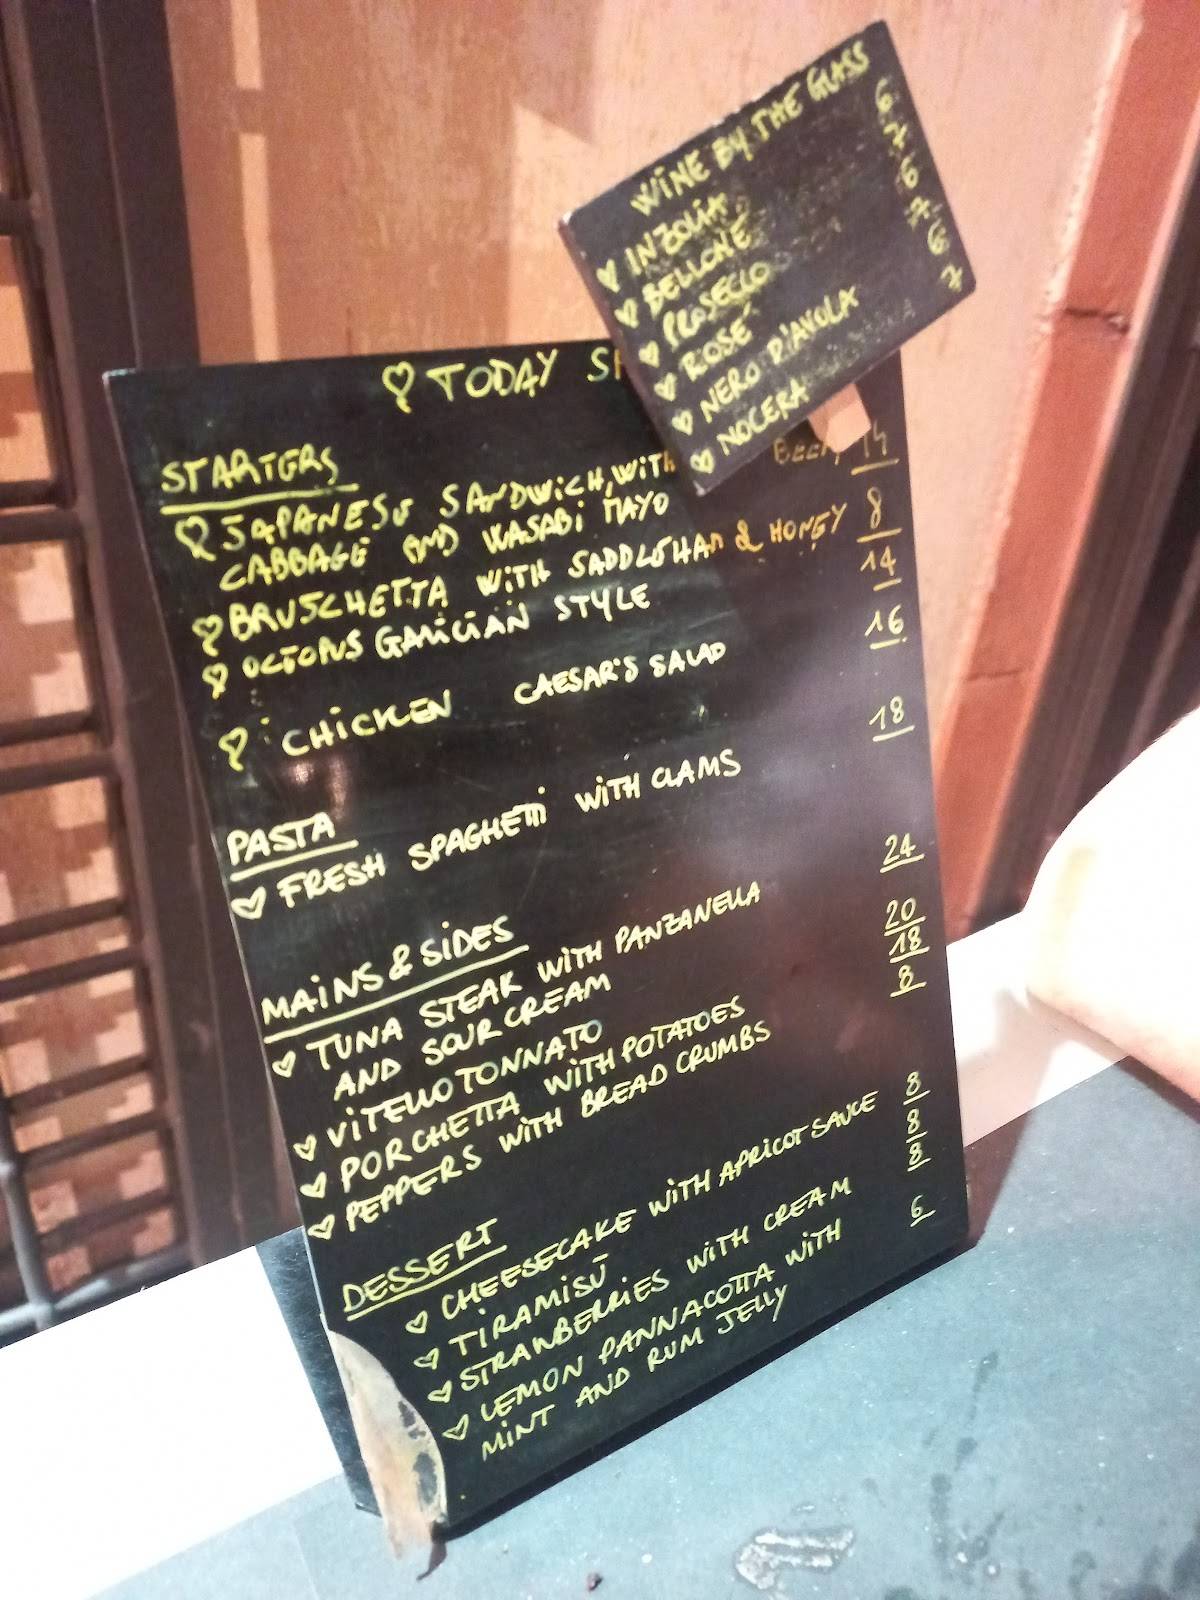 WINE BY THE GLASS
INZOLIA 6
BELLONE 7
PROSECCO 6
ROSÉ 7
NERO D'AVOLA 6
NOCERA 7
TODAY SP
STARTERS
JAPANESE SANDWICH, WITH BEEF, 14
CABBAGE AND WASABI MAYO
BRUSCHETTA WITH SADDLEHAM & HONEY 8
OCTOPUS GALICIAN STYLE 14
CHICKEN CAESAR'S SALAD 16
PASTA
FRESH SPAGHETTI WITH CLAMS 18
MAINS & SIDES
TUNA STEAK WITH PANZANELLA 24
AND SOUR CREAM
VITELLO TONNATO 20
PORCHETTA WITH POTATOES 18
PEPPERS WITH BREAD CRUMBS 8
DESSERT
CHEESECAKE WITH APRICOT SAUCE 8
TIRAMISÙ 8
STRAWBERRIES WITH CREAM 8
LEMON PANNACOTTA WITH 6
MINT AND RUM JELLY